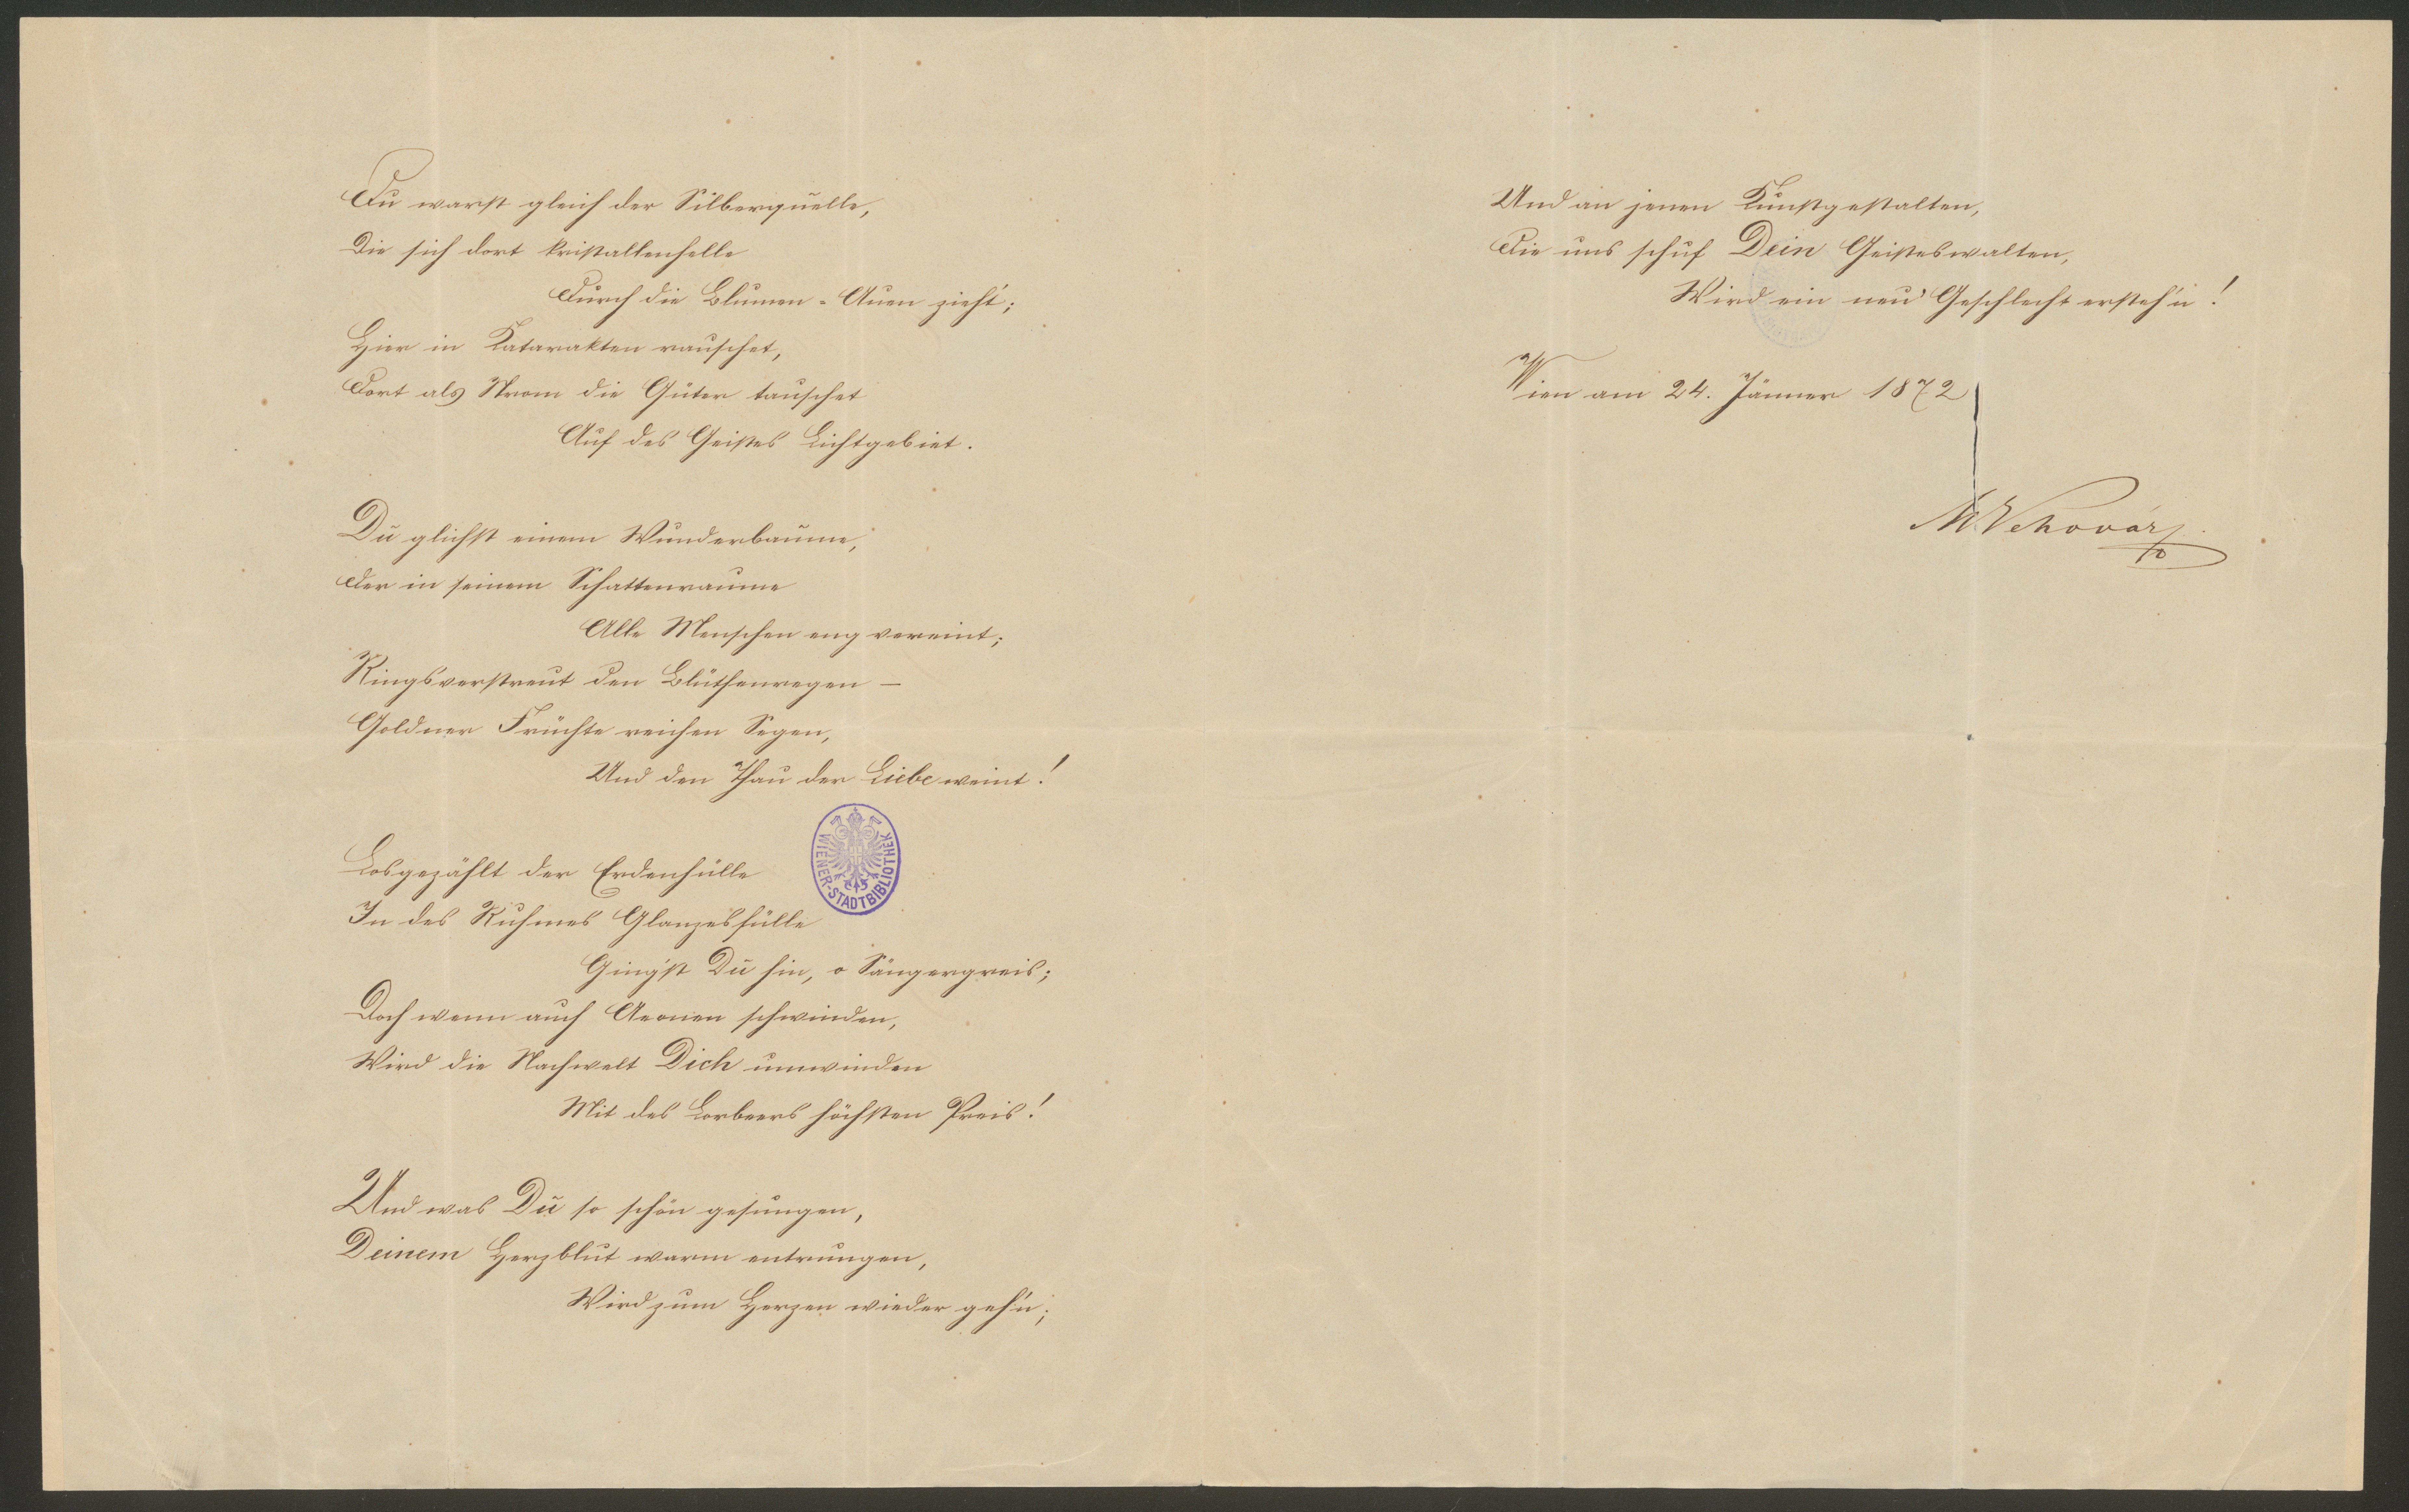 Du warst gleich der Silberquelle,
Die sich dort kristallenhelle
Durch die Blumen-Auen zieht;
Hier in Katarakten rauschet,
Dort als Strom die Güter tauschet
Auf des Geistes Lichtgebiet.
Du glichst einem Wunderbaume,
Der in seinem Schattenraume
Alle Menschen eng vereint;
Ringsverstreut den Blüthenregen —
Goldner Früchte reichen Segen,
Und den Thau der Liebe weint!
Losgezählt der Erdenhülle
In des Ruhmes Glanzesfülle
Ging'st Du hin, o Sängergreis;
Doch wenn auch Aeonen schwinden,
Wird die Nachwelt Dich umwinden
Mit des Lorbeers höchsten Preis!
Und was Du so schön gesungen,
Deinem Herzblut warm entrungen,
Wird zum Herzen wieder geh'n;
WIENER-STADTBIBLIOTHEK
Und an jenen Kunstgestalten,
Die uns schuf Dein Geisteswalten,
Wird ein neu' Geschlecht ersteh'n!
Wien am 24. Jänner 1872
M. Vehovar